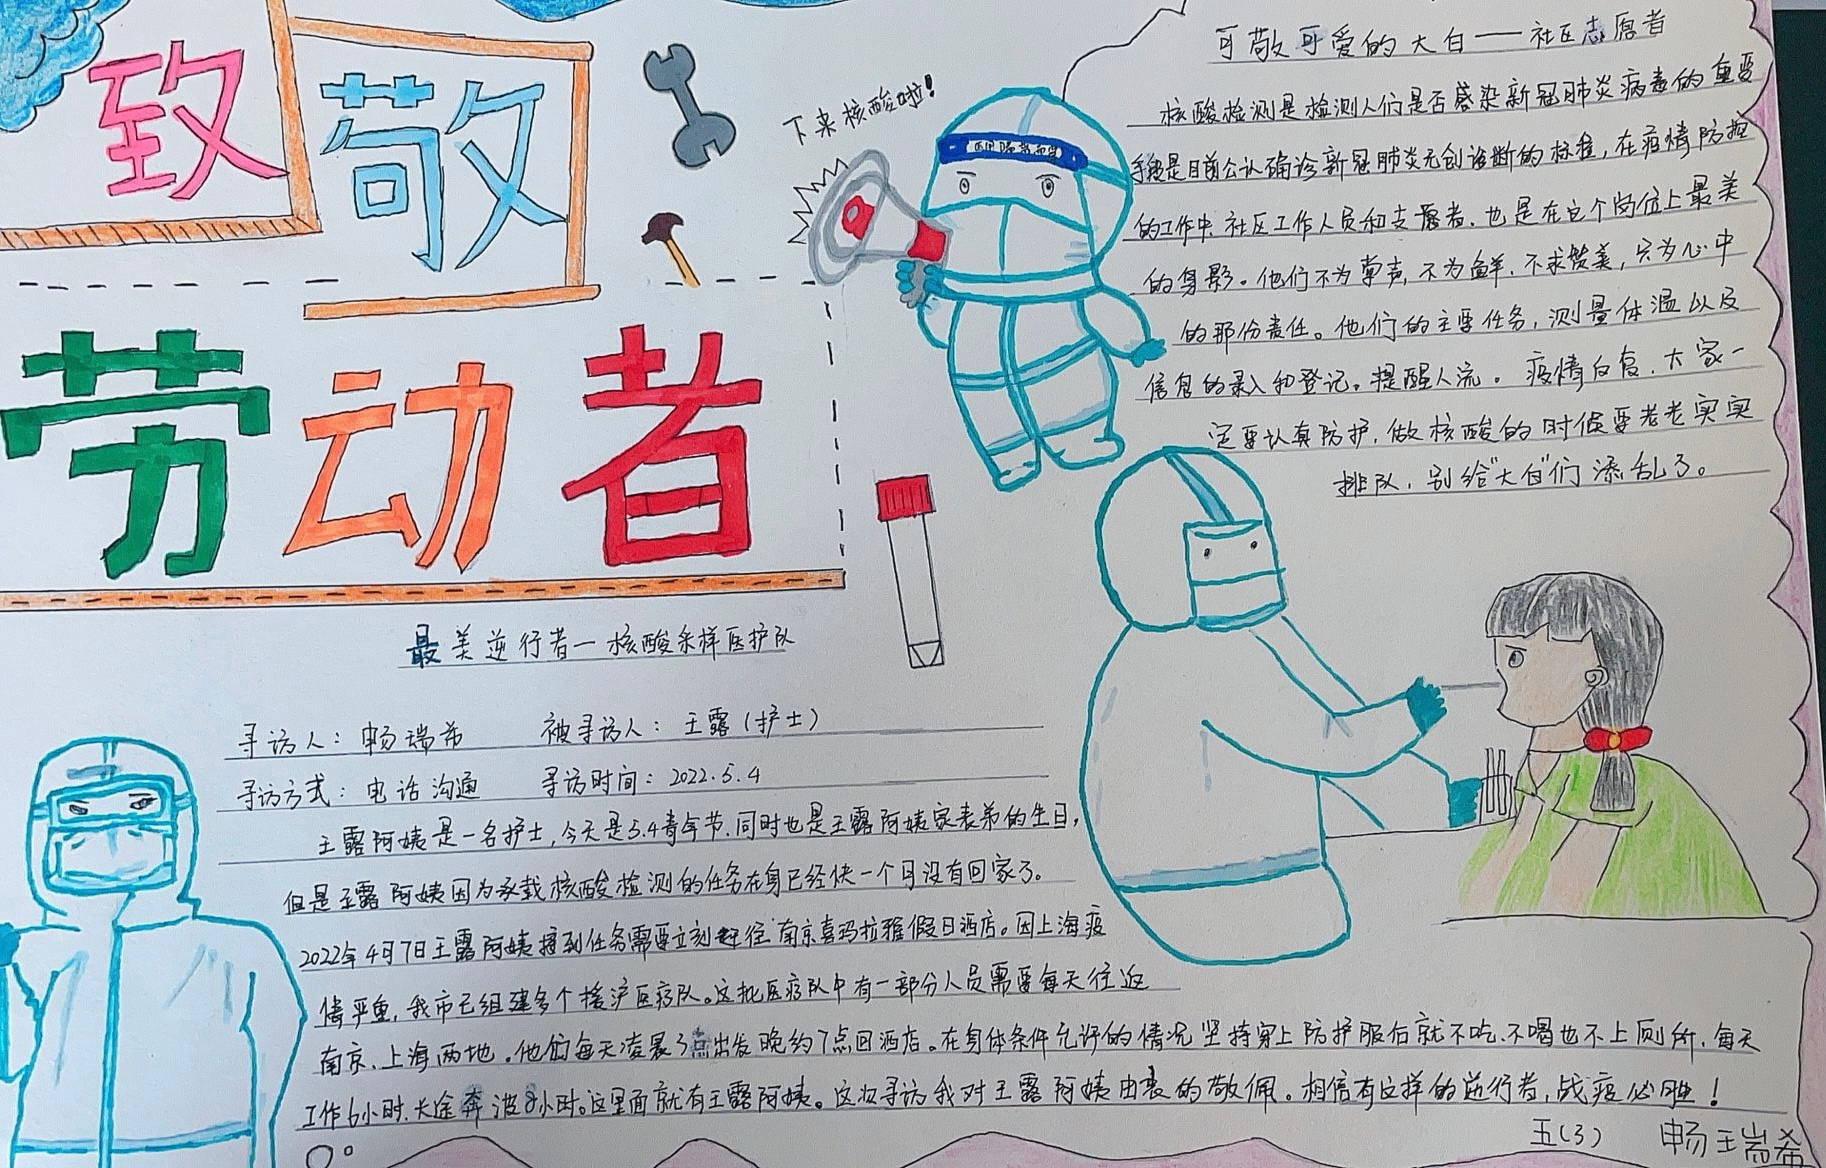 致敬
劳动者
下来核酸啦！
可敬可爱的大白——社区志愿者
核酸检测是检测人们是否感染新冠肺炎病毒的重要
手段是目前公认确诊新冠肺炎无创诊断的标准，在疫情防控
的工作中，社区工作人员和志愿者，也是在这个岗位上最美
的身影。他们不为掌声，不为鲜，不求赞美，只为心中
的那份责任。他们的主要任务，测量体温以及
信息的录入和登记。提醒人流。疫情白复，大家一
定要认真防护，做核酸的时候要老老实实
排队，别给“大白”们添乱了。
最美逆行者—核酸采样医护队
寻访人：畅瑞希 被寻访人：王露（护士）
寻访方式：电话沟通 寻访时间：2022.5.4
王露阿姨是一名护士，今天是5.4青年节，同时也是王露阿姨家表弟的生日，
但是王露阿姨因为承载核酸检测的任务在身已经快一个月没有回家了。
2022年4月7日王露阿姨接到任务需要立刻赶往南京喜玛拉雅假日酒店。因上海疫
情严重，我市已组建多个援沪医疗队。这批医疗队中有一部分人员需要每天往返
南京、上海两地。他们每天凌晨3点出发晚约7点回酒店。在身体条件允许的情况坚持穿上防护服后就不吃、不喝也不上厕所，每天
工作6小时，长途奔波8小时。这里面就有王露阿姨。这次寻访我对王露阿姨由衷的敬佩。相信有这样的逆行者，战疫必胜！
五（3） 畅瑞希